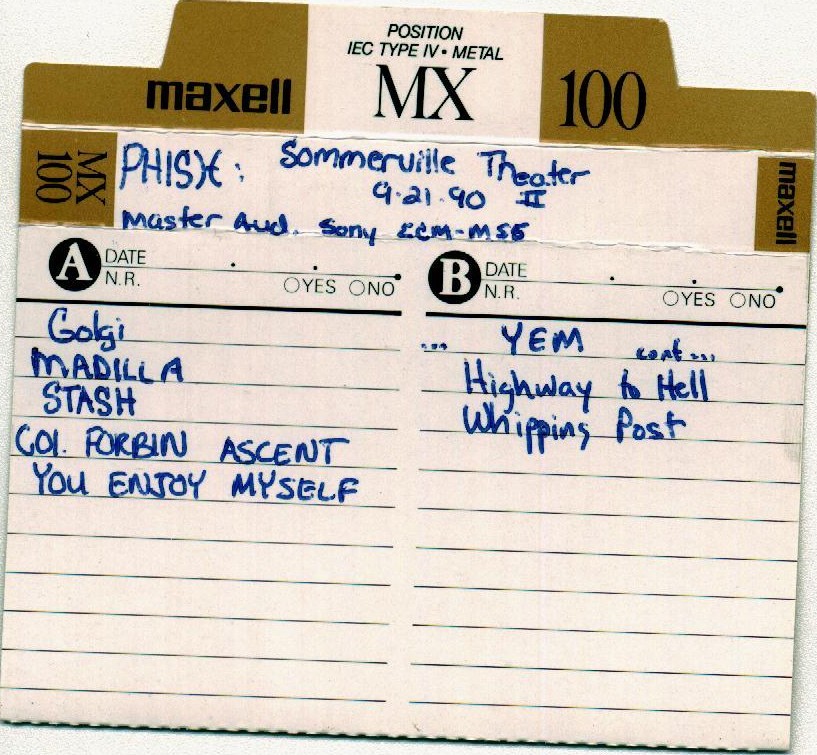 POSITION
IEC TYPE IV • METAL
maxell MX 100
MX 100
PHISH: Sommerville Theater
9.21.90 II
Master Aud. Sony ECM-MS5
maxell
A DATE . . .
N.R. YES NO
Golgi
MADILLA
STASH
COl. FORBIN ASCENT
YOU ENJOY MYSELF
B DATE . . .
N.R. YES NO
... YEM cont...
Highway to Hell
Whipping Post